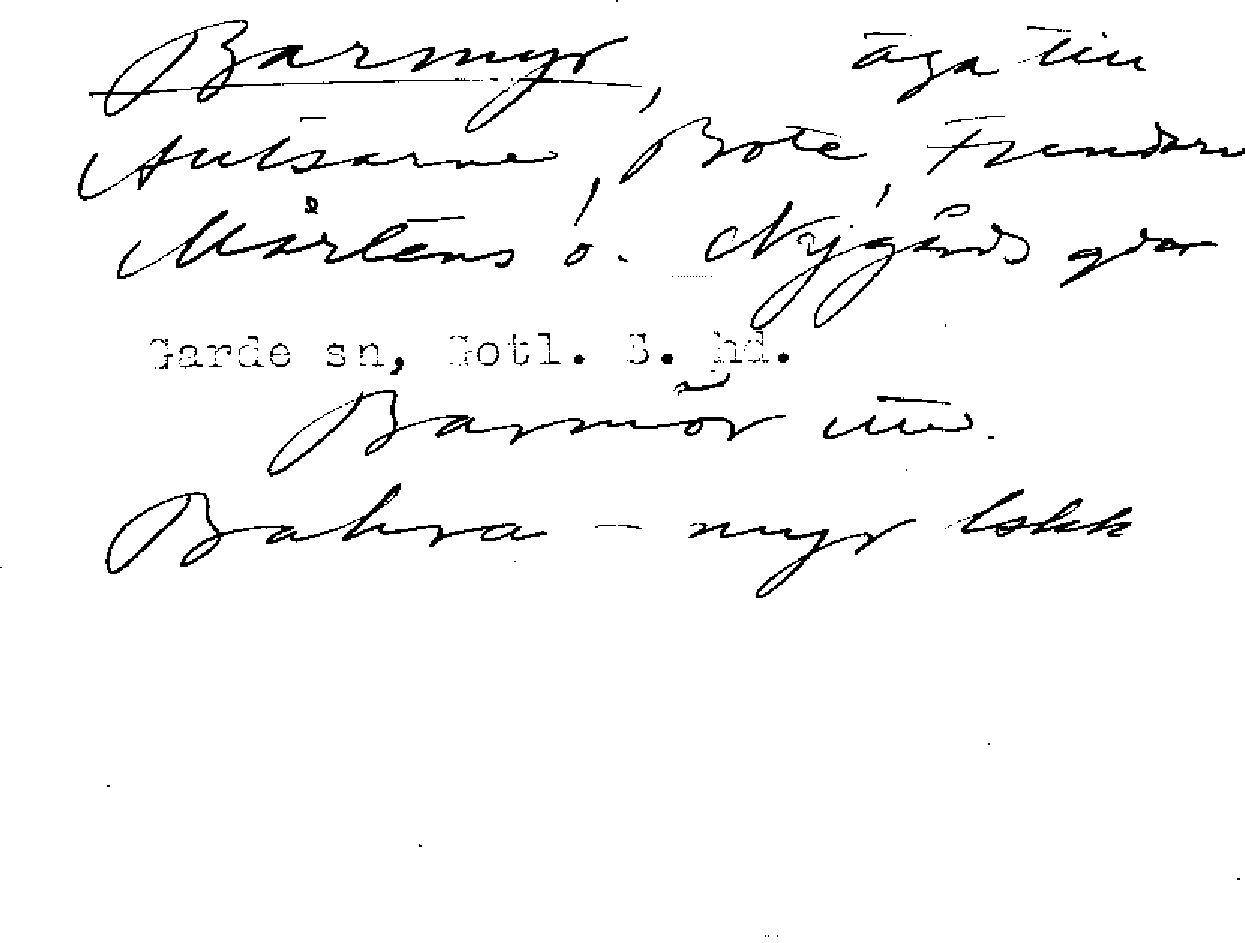 Barmyr, äga till
Autsarve, Bote, Frundarv
Mårtens o. Nygårds gdar
Garde sn, Gotl. S. hd.
Barmör utt.
Bahra – myr lskk